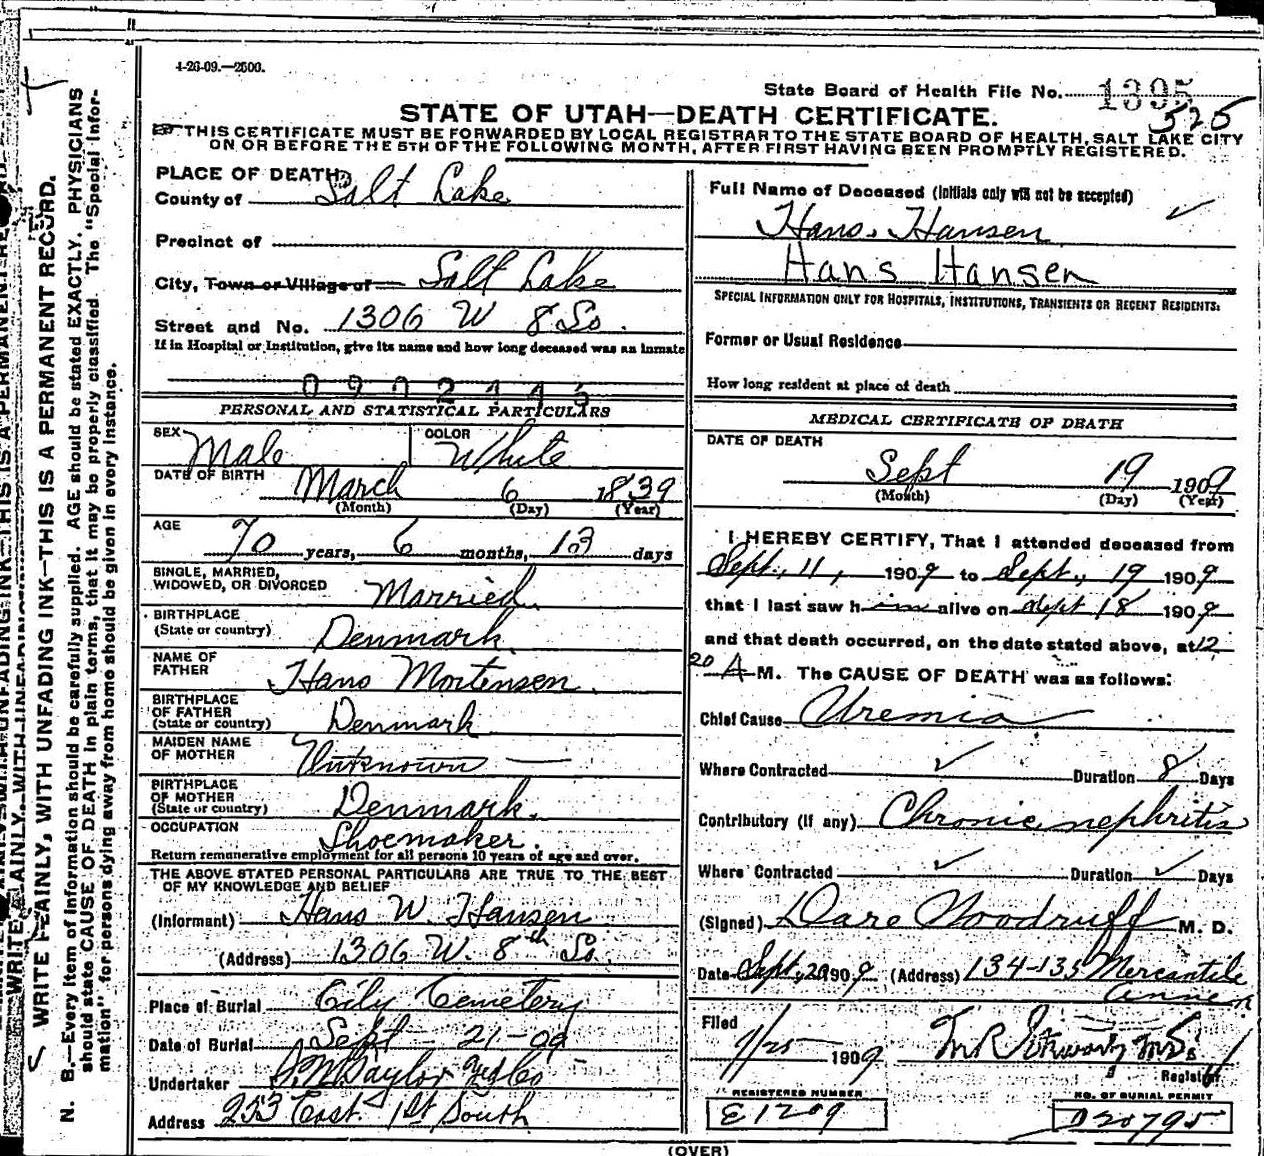 4-26-09.—2500.
State Board of Health File No. 1395
525
STATE OF UTAH—DEATH CERTIFICATE.
THIS CERTIFICATE MUST BE FORWARDED BY LOCAL REGISTRAR TO THE STATE BOARD OF HEALTH, SALT LAKE CITY
ON OR BEFORE THE 5TH OF THE FOLLOWING MONTH, AFTER FIRST HAVING BEEN PROMPTLY REGISTERED.
PLACE OF DEATH
County of Salt Lake
Precinct of
City, Town or Village of Salt Lake
Street and No. 1306 W 8 So.
If in Hospital or Institution, give its name and how long deceased was an inmate
PERSONAL AND STATISTICAL PARTICULARS
SEX Male COLOR White
DATE OF BIRTH March 6 1839
(Month) (Day) (Year)
AGE 70 years, 6 months, 13 days
SINGLE, MARRIED,
WIDOWED, OR DIVORCED Married
BIRTHPLACE
(State or country) Denmark
NAME OF
FATHER Hans Mortensen
BIRTHPLACE
OF FATHER
(State or country) Denmark
MAIDEN NAME
OF MOTHER Unknown
BIRTHPLACE
OF MOTHER
(State or country) Denmark.
OCCUPATION Shoemaker.
Return remunerative employment for all persons 10 years of age and over.
THE ABOVE STATED PERSONAL PARTICULARS ARE TRUE TO THE BEST
OF MY KNOWLEDGE AND BELIEF
(Informant) Hans W. Hansen
(Address) 1306 W. 8th So.
Place of Burial City Cemetery
Date of Burial Sept - 21-09
Undertaker Taylor
Address 253 East 1st South
Full Name of Deceased (Initials only will not be accepted)
Hans. Hansen
Hans Hansen
SPECIAL INFORMATION ONLY FOR HOSPITALS, INSTITUTIONS, TRANSIENTS OR RECENT RESIDENTS:
Former or Usual Residence
How long resident at place of death
MEDICAL CERTIFICATE OF DEATH
DATE OF DEATH
Sept 19 1909
(Month) (Day) (Year)
I HEREBY CERTIFY, That I attended deceased from
Sept, 11, 1909 to Sept, 19 1909
that I last saw him alive on Sept 18 1909
and that death occurred, on the date stated above, at 12
20 A M. The CAUSE OF DEATH was as follows:
Chief Cause Uremia
Where Contracted Duration 8 Days
Contributory (if any) Chronic nephritis
Where Contracted Duration Days
(Signed) Dare Woodruff M. D.
Date Sept, 20 1909 (Address) 134-135 Mercantile
Annex
Filed 9/25 1909
Registrar
REGISTERED NUMBER
E1209
NO. OF BURIAL PERMIT
D20795
(OVER)
WRITE PLAINLY, WITH UNFADING INK—THIS IS A PERMANENT RECORD.
N. B.—Every item of information should be carefully supplied. AGE should be stated EXACTLY. PHYSICIANS
should state CAUSE OF DEATH in plain terms, that it may be properly classified. The "Special Infor-
mation" for persons dying away from home should be given in every instance.